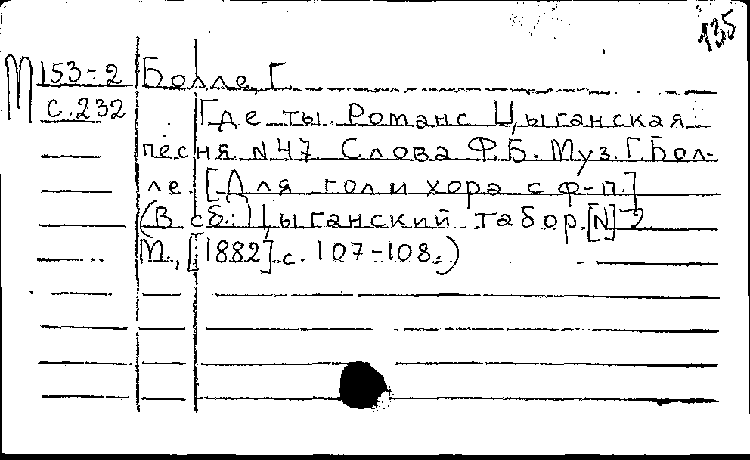 135
М 153-2 Болле, Г.
с. 232 Где ты. Романс. Цыганская
песня N 47. Слова Ф.Б. Муз. Г. Бол-
ле. [Для гол. и хора с ф-п.]
(В сб.: Цыганский табор. [N] 2
М., [1882] с. 107-108.)